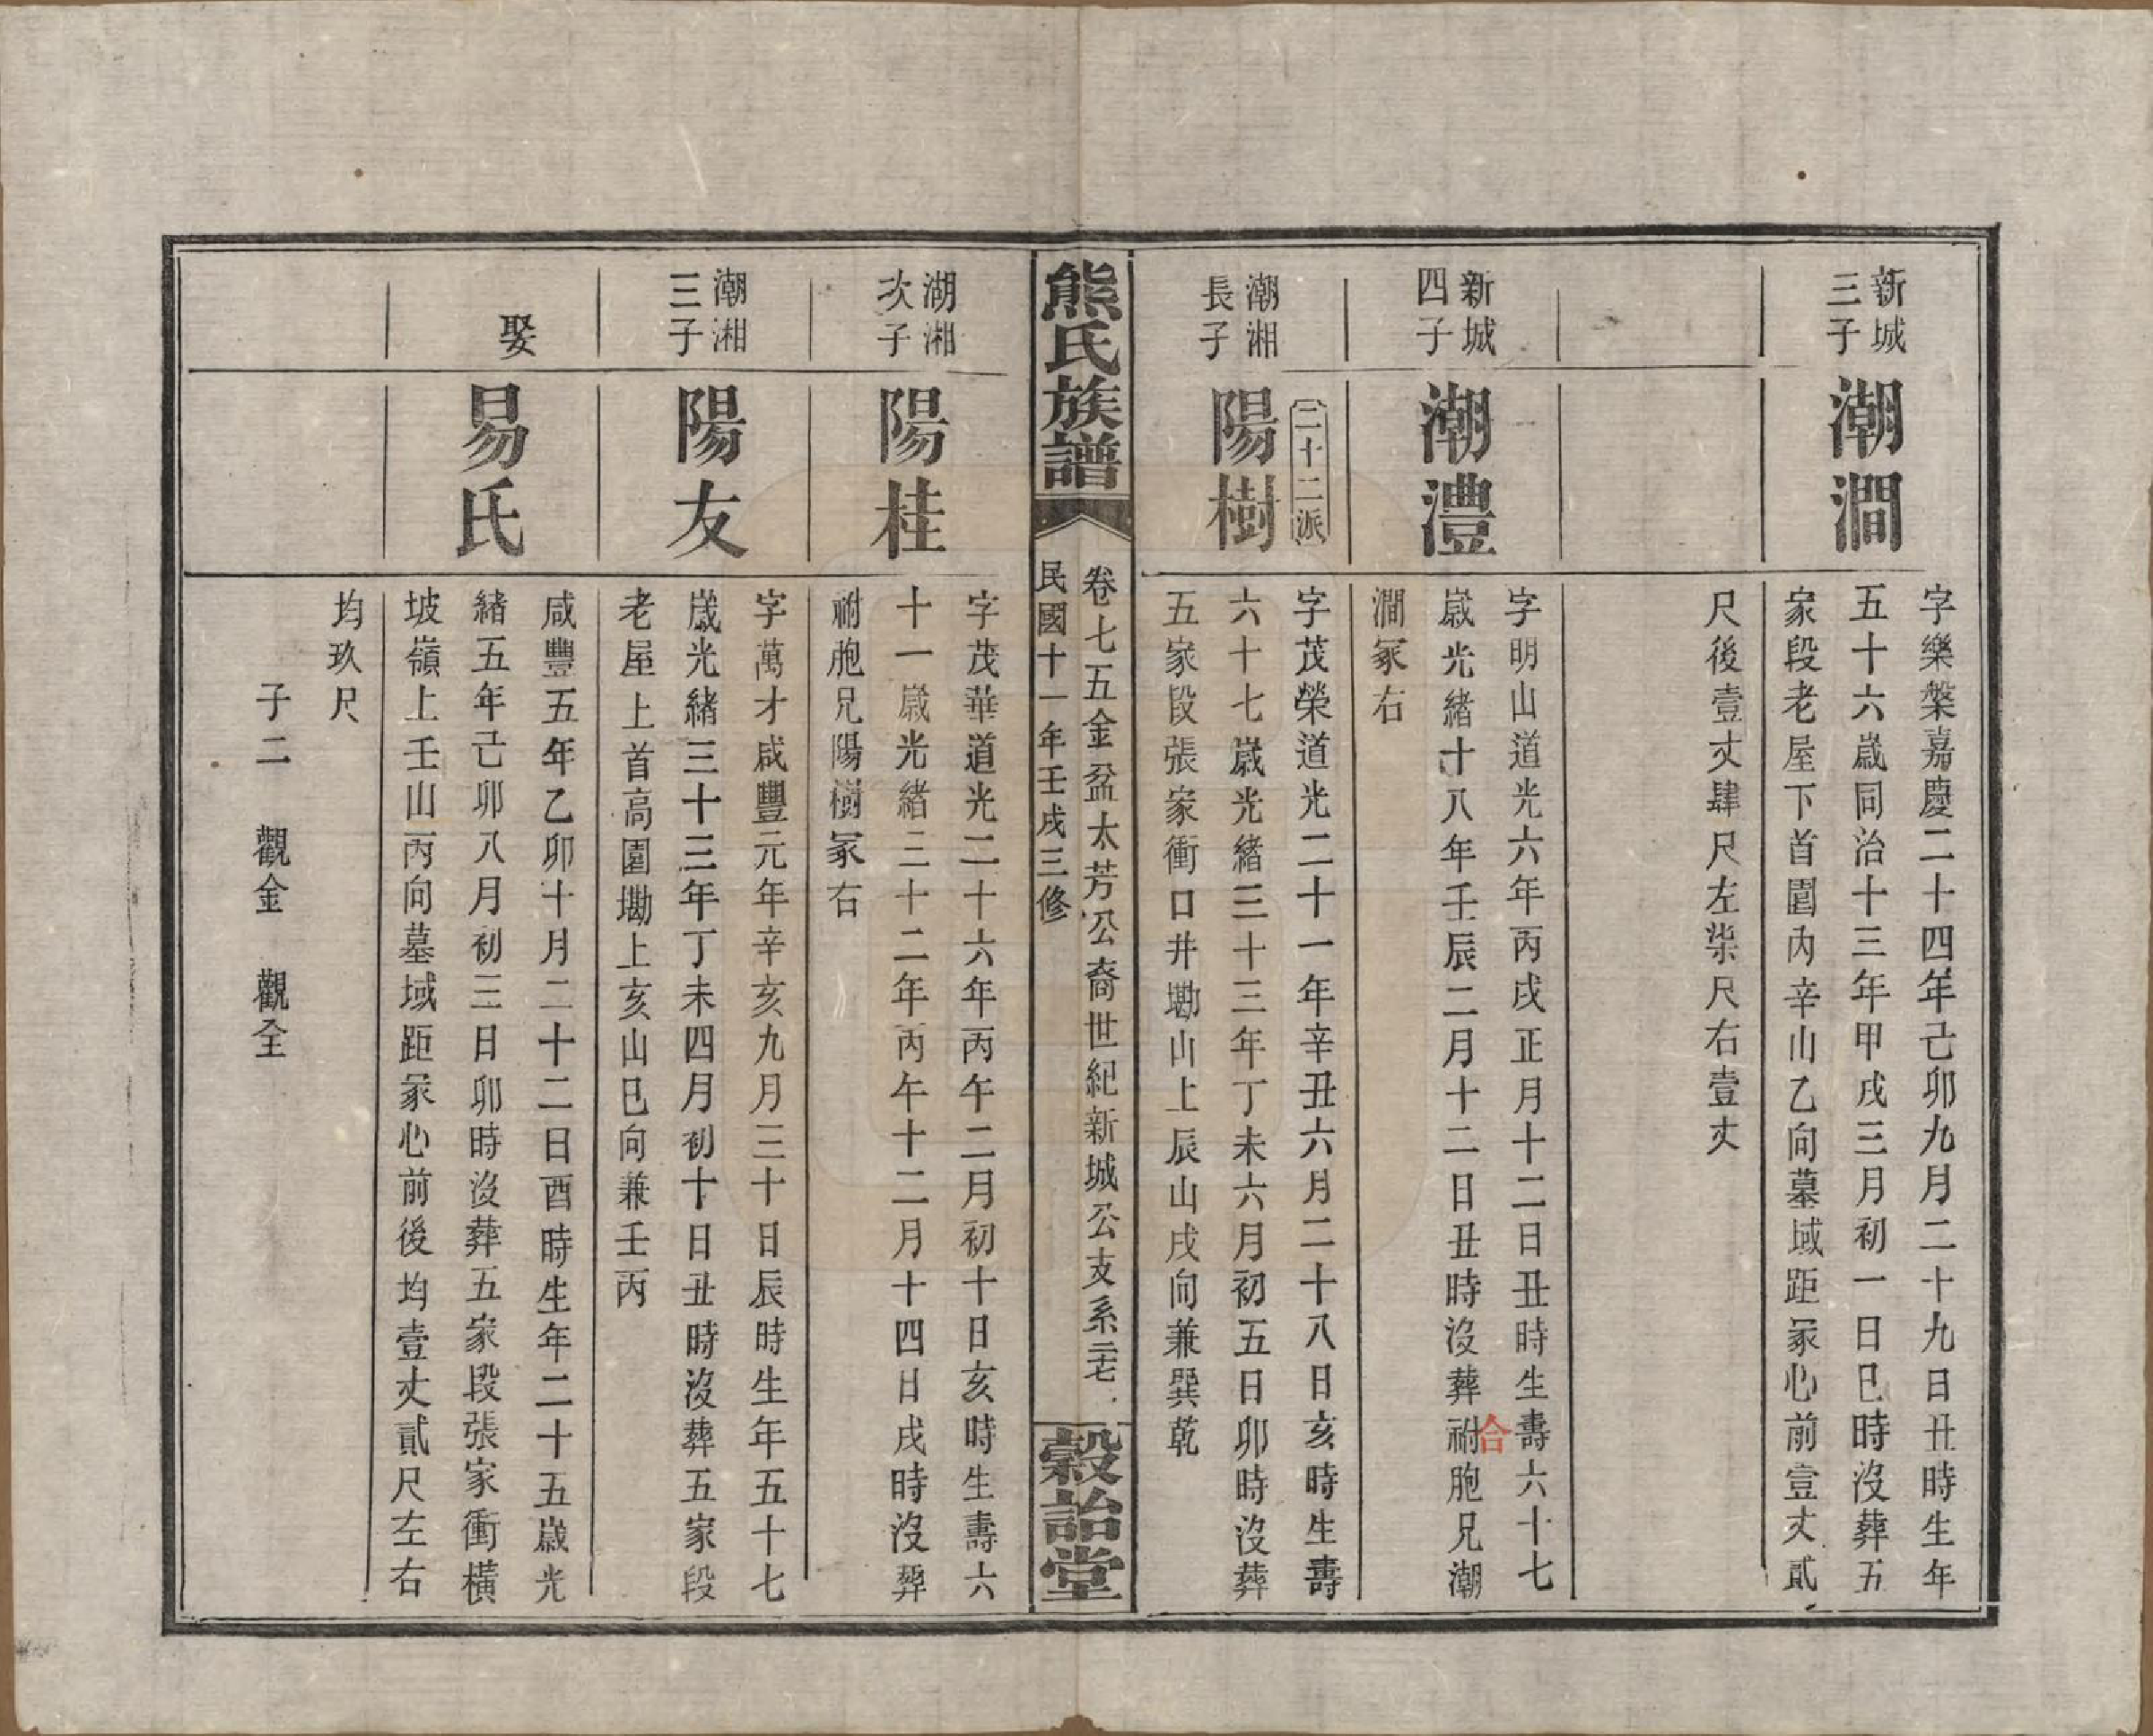 新城
三子
潮澗
字樂槃嘉慶二十四年己卯九月二十九日丑時生年
五十六歲同治十三年甲戌三月初一日巳時沒葬五
家段老屋下首園內辛山乙向墓域距冢心前壹丈貳
尺後壹丈肆尺左柒尺右壹丈
新城
四子
潮澧
字明山道光六年丙戌正月十二日丑時生壽六十七
歲光緒十八年壬辰二月十二日丑時沒葬祔胞兄潮
合
澗冢右
二十二派
潮湘
長子
陽樹
字茂榮道光二十一年辛丑六月二十八日亥時生壽
六十七歲光緒三十三年丁未六月初五日卯時沒葬
五家段張家衝口井墈山上辰山戌向兼巽乾
熊氏族譜
卷七五金盆太芳公裔世紀新城公支系二七
民國十一年壬戌三修
穀詒堂
湖湘
次子
陽桂
字茂華道光二十六年丙午二月初十日亥時生壽六
十一歲光緒三十二年丙午十二月十四日戌時沒葬
祔胞兄陽樹冢右
潮湘
三子
陽友
字萬才咸豐元年辛亥九月三十日辰時生年五十七
歲光緒三十三年丁未四月初十日丑時沒葬五家段
老屋上首高園墈上亥山巳向兼壬丙
娶
易氏
咸豐五年乙卯十月二十二日酉時生年二十五歲光
緒五年己卯八月初三日卯時沒葬五家段張家衝橫
坡嶺上壬山丙向墓域距冢心前後均壹丈貳尺左右
均玖尺
子二　觀金　觀全